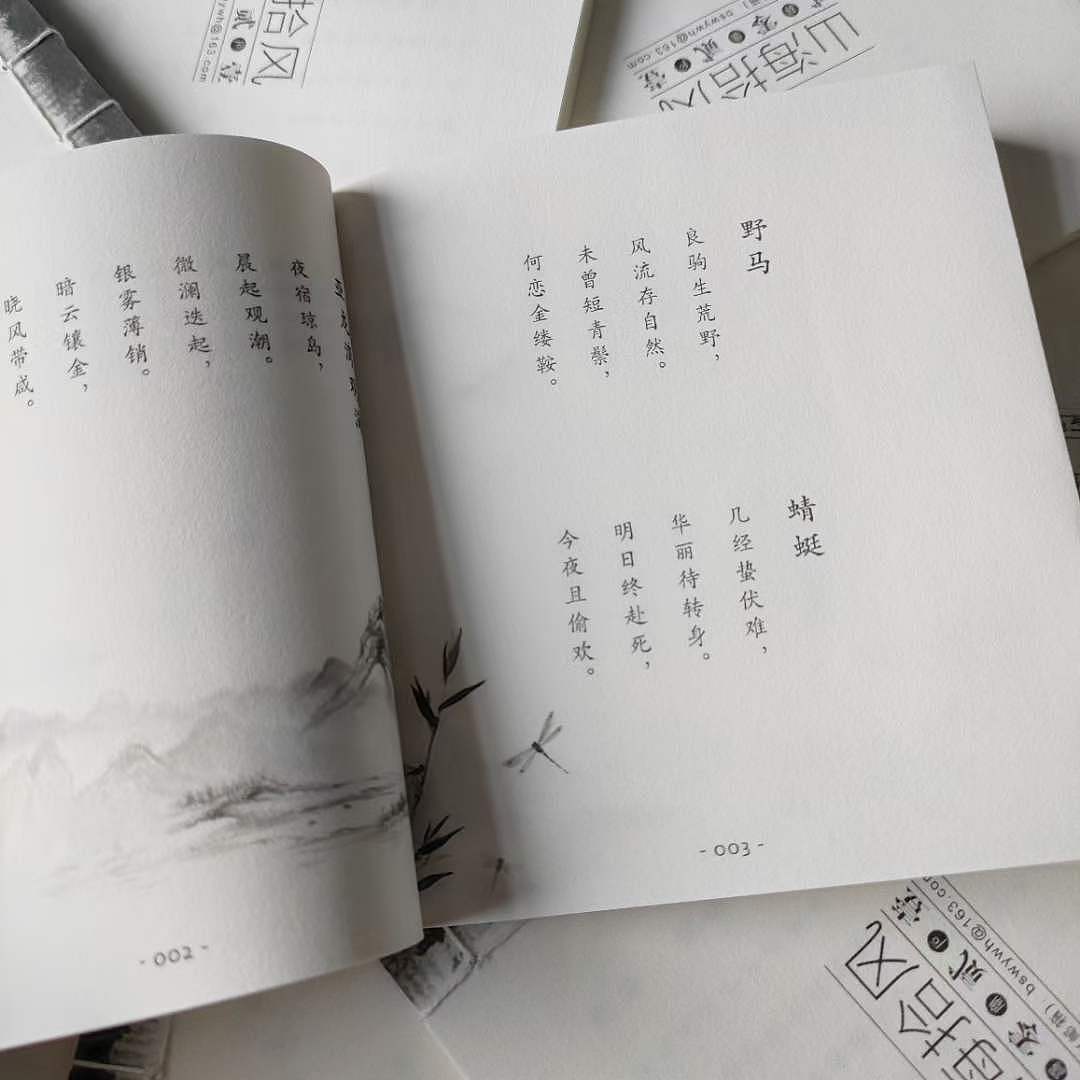 夜宿琼岛，
晨起观潮。
微澜迭起，
银雾薄销。
暗云镶金，
晓风带咸。
- 002 -
野马
良驹生荒野，
风流存自然。
未曾短青鬃，
何恋金缕鞍。
蜻蜓
几经蛰伏难，
华丽待转身。
明日终赴死，
今夜且偷欢。
- 003 -
拾风
贰
@163.com
山海拾风
零贰
bswywh@163.com
海拾风
零贰
邮箱）：bswywh@163.com